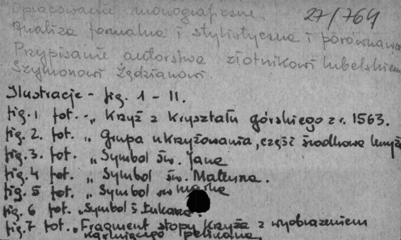 Opracowanie monograficzne. 27/764
Analiza formalna i stylistyczna i porównawcza
Przypisanie autorstwa złotnikowi lubelskiem
Szymonowi
Ilustracje - fig. 1 - 11.
fig. 1 fot. - „Krzyż z kryształu górskiego z r. 1563.
fig. 2. fot. „Grupa ukrzyżowania, część środkowa
fig. 3. fot. „Symbol św. Jana
fig. 4 fot. „Symbol św. Mateusza.
fig. 5 fot. „Symbol św. Marka
fig. 6 fot. „Symbol ś Łukasza
fig. 7 fot. „Fragment stopy krzyża z wyobrażeniem
karmiącego pelikana